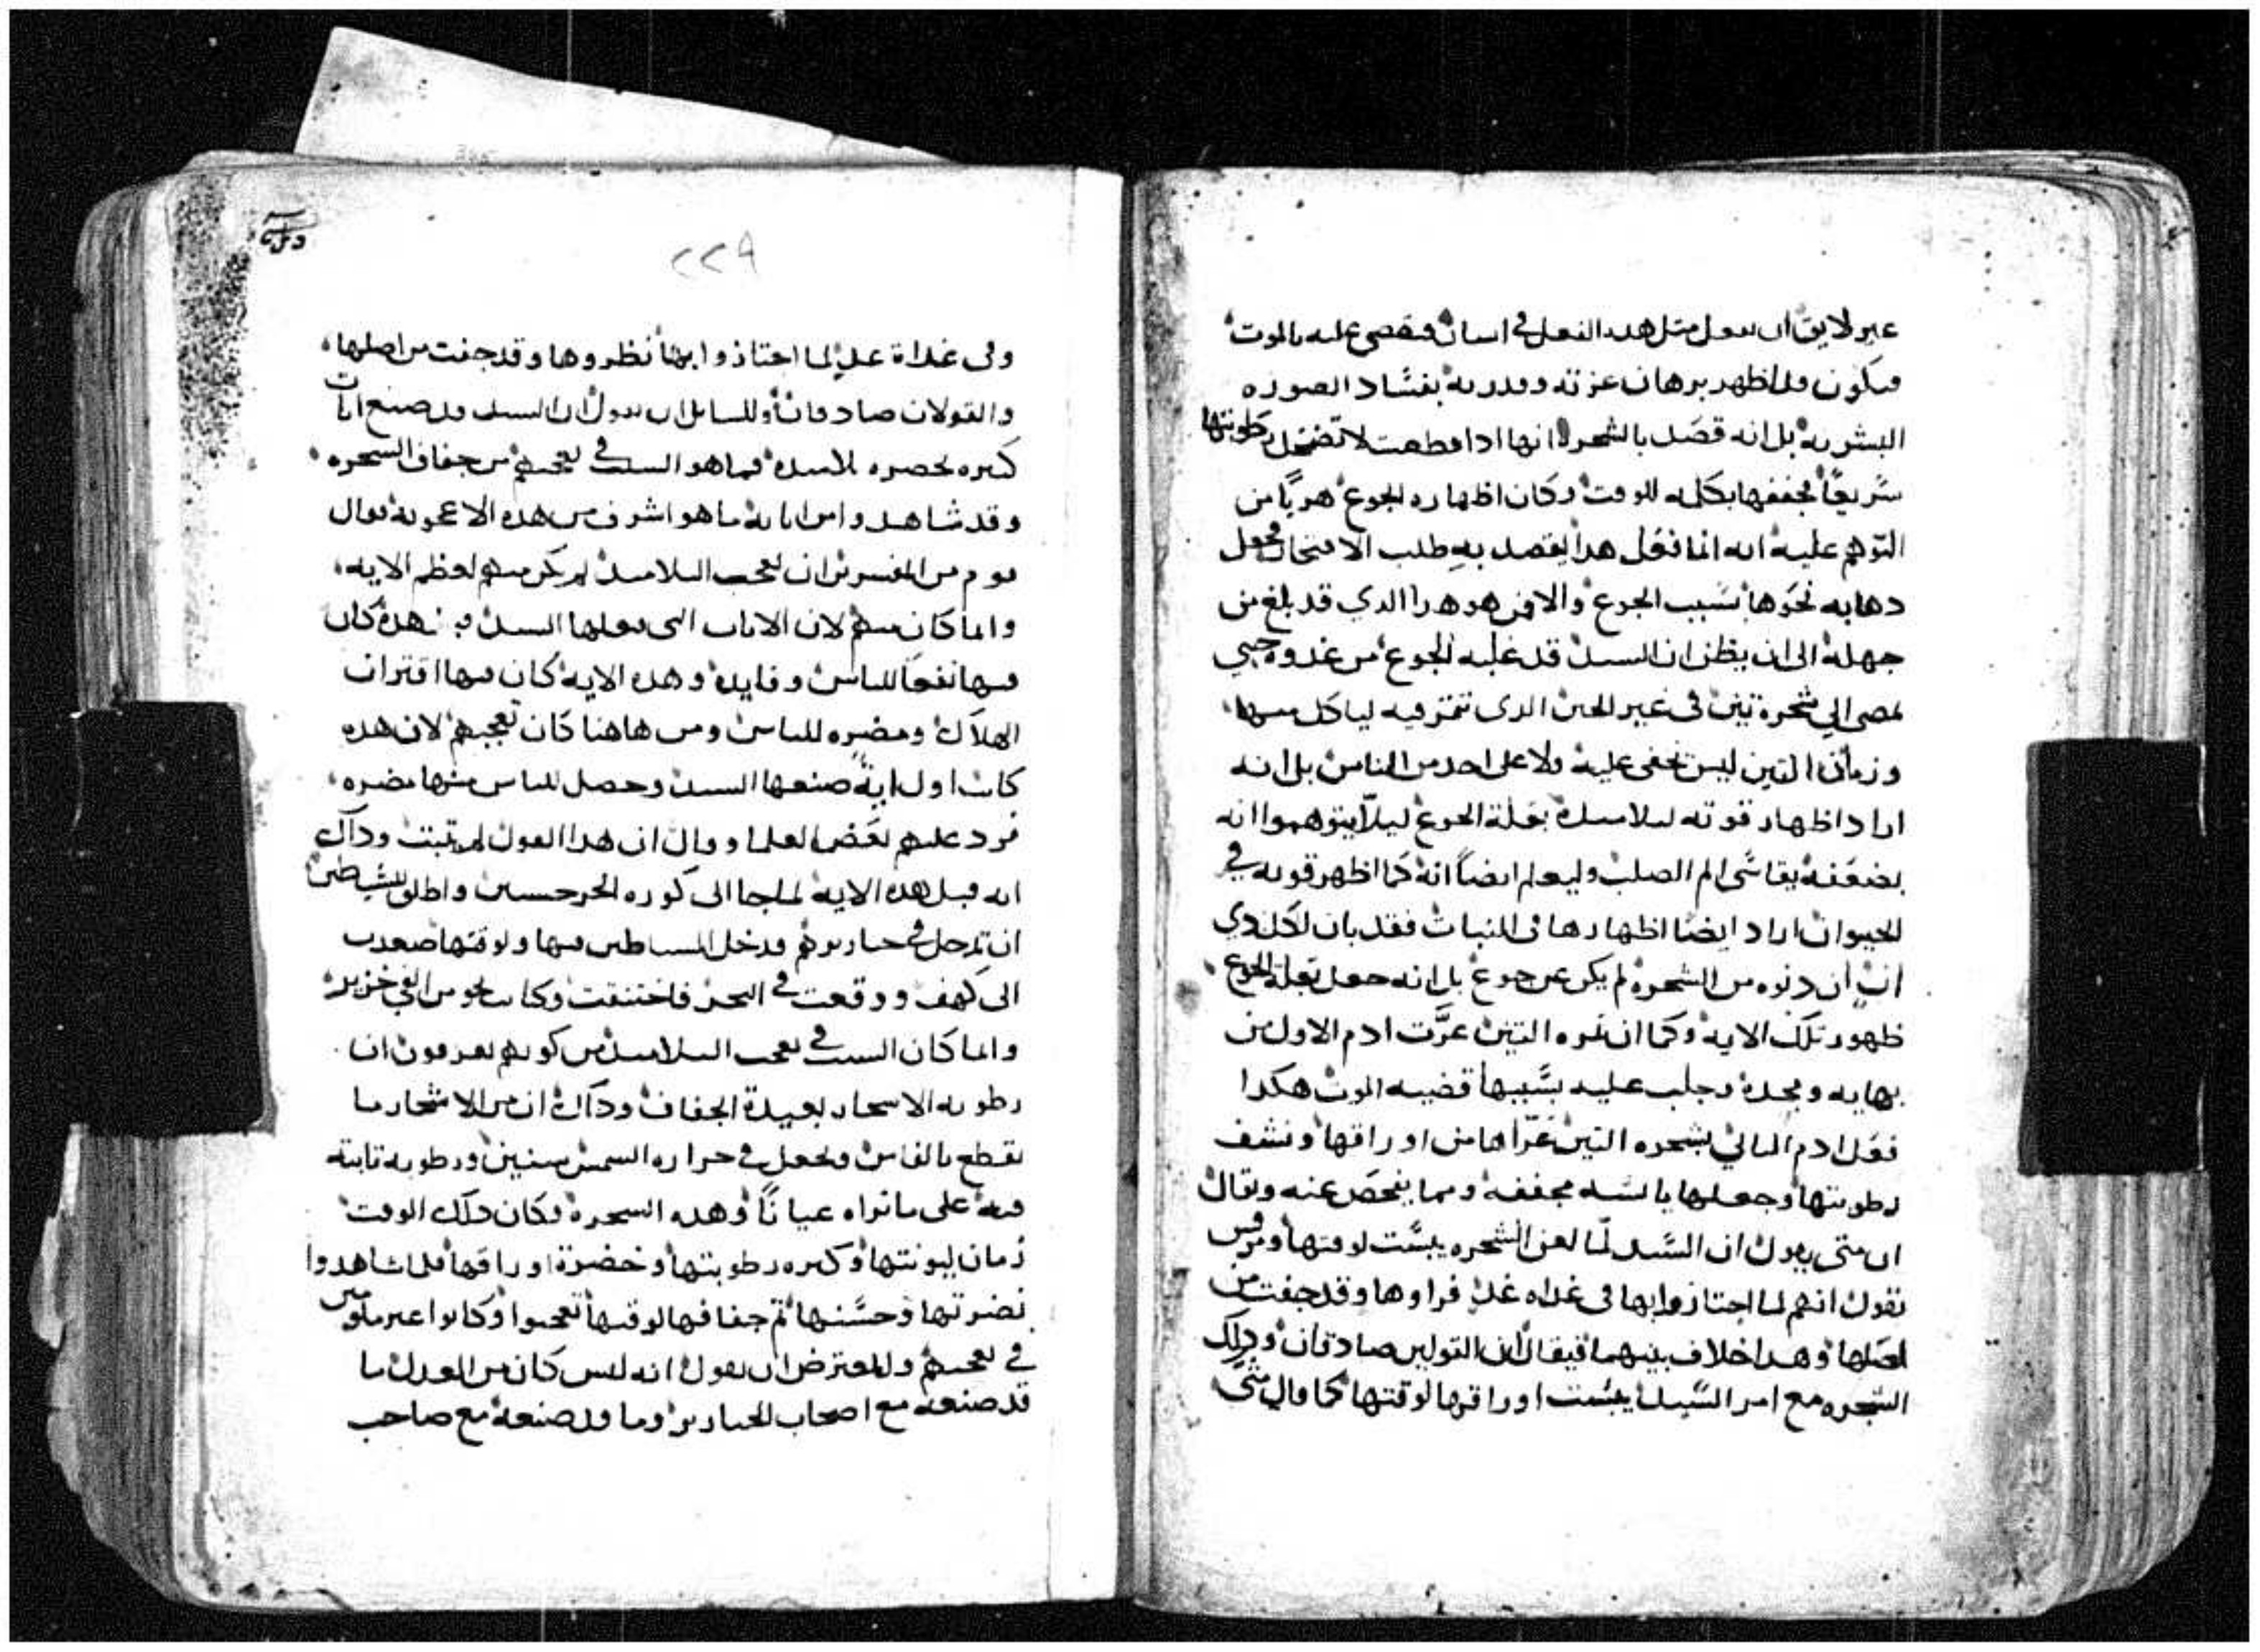 غير لايق ان يفعل متل هدا الفعل في انسان فيقضي عليه بالموت
فيكون قد اظهر برهان عزته وقدرته بفساد الصوره
البشريه بل انه قصد بالشجره لانها ادا قطعت لا تضمحل رطوبتها
سريعًا فجففها بكلمه للوقت وكان اظهاره الجوع هربًا من
التوهم عليه انه انما فعل هدا يقصد به طلب الامتحان فجعل
دهابه نحوها بسبب الجوع والافن هو هدا الدي قد بلغ من
جهله الى ان يظن ان السيد قد غلبه الجوع من غدوه حتي
يمضي الي شجرة تين في غير الحين الدي تتمر فيه لياكل منها
وزمان التين ليس يخفى عليه ولا على احد من الناس بل انه
اراد اظهار قوته لتلاميده بعلة الجوع ليلا يتوهموا انه
بضعفه يقاسي الم الصلب وليعلم ايضاً انه كما اظهر قوته في
الحيوان اراد ايضا اظهارها في النبات فقد بان لكل دي
ان دنوه من الشجره لم يكن عن جوع بل انه جعل بعلة الجوع
ظهور تلك الايه وكما ان تمره التين عرَّت ادم الاول من
بهايه ومجده وجلب عليه بسببها قضيه الموت هكدا
فعل ادم التاني بشجره التين عرّاها من اوراقها ونشف
رطوبتها وجعلها يابسه مجففه ومما يفحص عنه ويقال
ان متى يقول ان السيد لمّا لعن الشجره يبست لوقتها ومرقس
يقول انهم لما اجتازوا بها في غداه غد فراوها وقد جفت من
اصلها وهدا خلاف بينهما فيقال ان القولين صادقان ودلك
الشجره مع امر السيد يبست اوراقها لوقتها كما قال متى
٢٢٩
وفي غداة غد لما اجتازوا بها نظروها وقد جفت من اصلها
والقولان صادقان وللسايل ان يقول ان السيد قد صنع ايات
كتيره بحضره تلاميده فما هو السبب في تعجبهم من جفاف الشجره
وقد شاهدوا من اياته ما هو اشرف من هده الاعجوبه فقال
قوم من المفسرين ان تعجب التلاميد لم يكن منهم لعظم الايه
وانما كان منهم لان الايات التي فعلها السيد قبل هده كان
فيها نفعًا للناس وفايده وهده الايه كان فيها اقتران
الهلاك ومضره للناس ومن هاهنا كان تعجبهم لان هده
كانت اول اية صنعها السيد وحصل للناس منها مضره
فرد عليهم بعض العلما وقال ان هدا القول لم يتبت وداك
انه قبل هده الايه لما جا الى كوره الجرجسين واطلق للشياطين
ان تدخل في خنازيرهم فدخل الشياطين فيها ولوقتها صعدت
الى كهف ووقعت في البحر فاختنقت وكانت نحو من الفي خنزير
وانما كان السبب في تعجب التلاميد من كونهم يعرفون ان
رطوبه الاشجار بعيدة الجفاف وداك ان من الاشجار ما
يقطع بالفاس ويجعل في حراره الشمس سنين ورطوبه تابته
فيه على ما نراه عيانًا وهده الشجره فكان داك الوقت
زمان ليونتها وكتره رطوبتها وخضرة اوراقها فلما شاهدوا
نضرتها وحسنها تم جفافها لوقتها تعجبوا وكانوا غير ملومين
في تعجبهم وللمعترض ان يقول انه ليس كان من العدل ما
قد صنعه مع اصحاب الخنازير وما قد صنعه مع صاحب